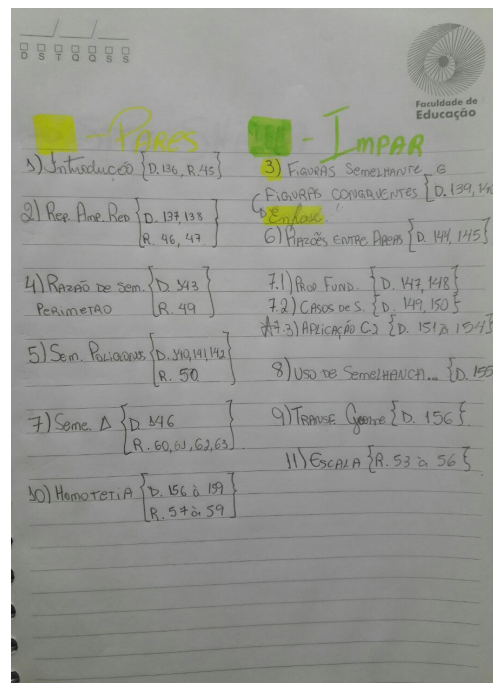 D S T Q Q S S
Faculdade de
Educação
- PARES
1) Introdução {D. 136, R. 45}
2) Rep. Amp. Red [D. 137, 138
R. 46, 47]
4) RAZÃO DE SEM. [D. 143
PERIMETRO R. 49]
5) Sem. POLIGONOS [D. 140, 141, 142
R. 50]
7) Seme. Δ [D. 146
R. 60, 61, 62, 63]
10) HOMOTETIA [D. 156 à 159
R. 57 à 59]
- IMPAR
3) FIGURAS SEMELHANTE E
FIGURAS CONGRUENTES [D. 139, 140
Enfase
6) RAZÕES ENTRE ÁREAS {D. 144, 145}
7.1) PROP FUND. {D. 147, 148}
7.2) CASOS DE S. {D. 149, 150}
7.3) APLICAÇÃO {D. 151 à 154}
8) USO DE SEMELHANCA... {D. 155
9) TRANSF. Geome {D. 156}
11) ESCALA {R. 53 à 56}